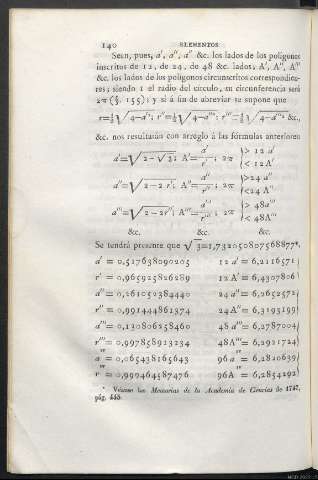 140 ELEMENTOS
Sean, pues, a', a'', a''' &c. los lados de los polígonos
inscritos de 12, de 24, de 48 &c. lados; A', A'', A'''
&c. los lados de los polígonos circunscritos correspondien-
tes; siendo 1 el radio del círculo, su circunferencia será
2π (§. 155); y si á fin de abreviar se supone que
&c. nos resultarán con arreglo á las fórmulas anteriores
a'=√2-√3; A'=a'/r'; 2π {> 12 a' < 12 A'
a''=√2-2r'; A''=a''/r''; 2π {>24 a'' <24 A''
a'''=√2-2r''; A'''=a'''/r'''; 2π {> 48a''' < 48A'''
&c. &c. &c.
Se tendrá presente que √3=1,7320508075688877*,
a' = 0,517638090205 12 a' = 6,2116571
r' = 0,965925826289 12 A' = 6,4307806
a'' = 0,261052384440 24 a'' = 6,2652572
r'' = 0,991444861374 24 A'' = 6,3195199
a''' = 0,130806258460 48 a''' = 6,2787004
r''' = 0,997858923234 48A''' = 6,2921724
a'''' = 0,065438165643 96 a'''' = 6,2820639
r'''' = 0,999464587476 96A'''' = 6,2854292
* Véanse las Memorias de la Academia de Ciencias de 1747,
pág. 445.